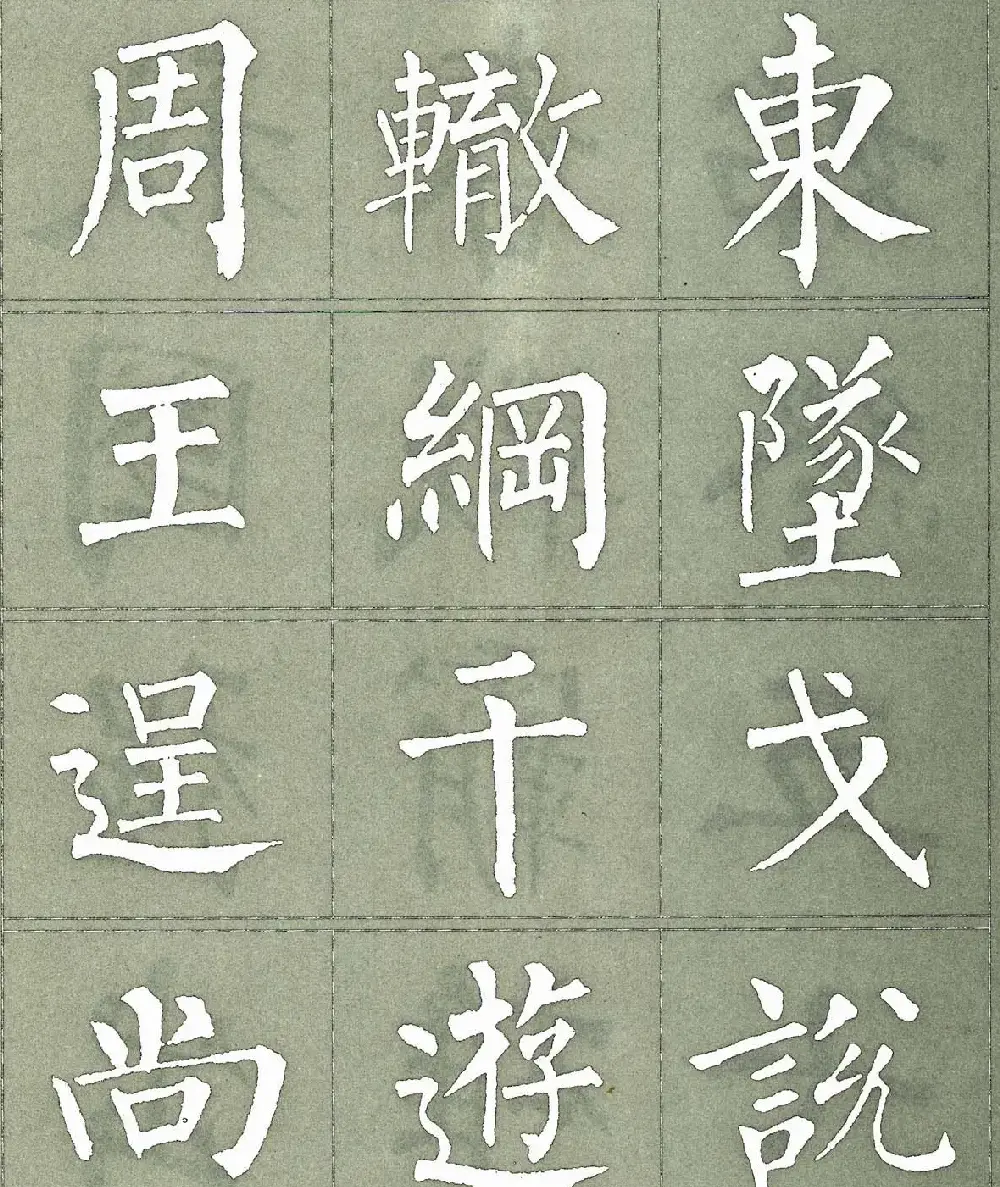 周轍東
王綱墜
逞干戈
尚遊說